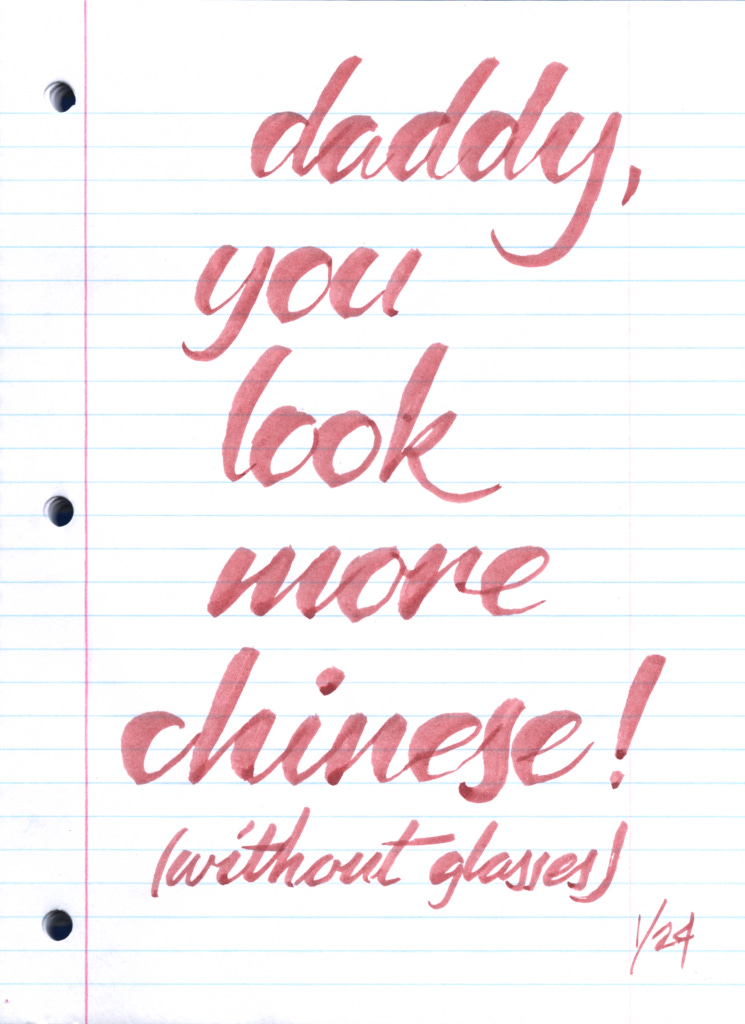 daddy,
you
look
more
chinese!
(without glasses)
1/24